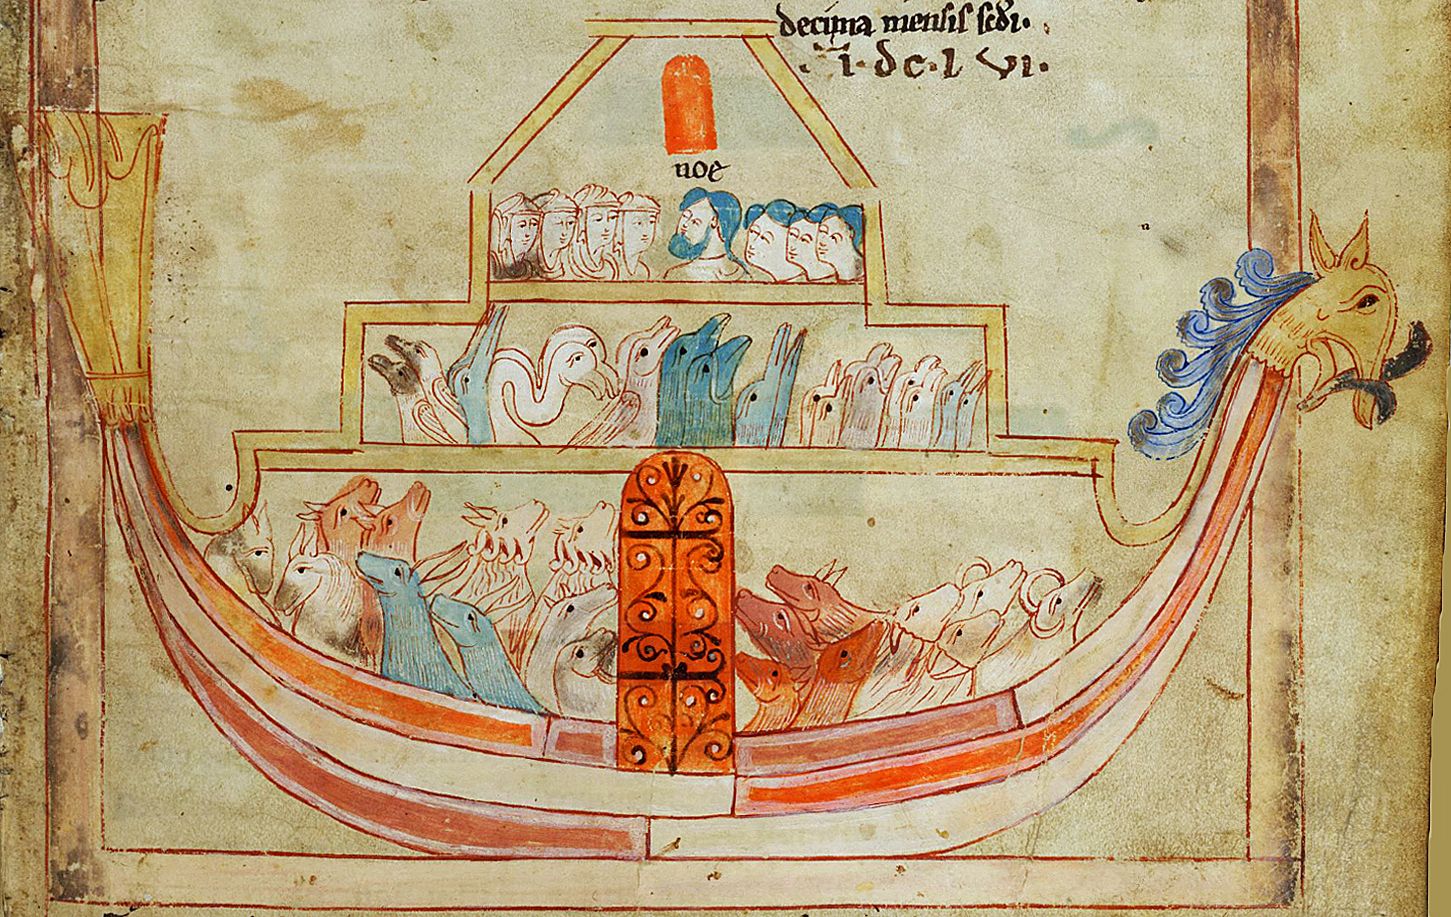 decima mensis scd̄i.
.ī.dc.l vi.
noe